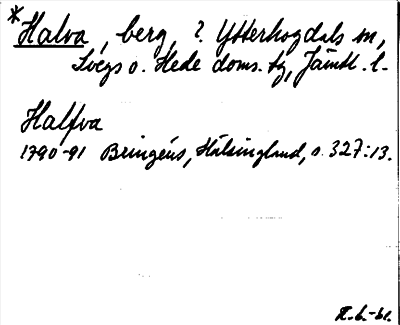 *Halva, berg, ?. Ytterhogdals sn,
Svegs o. Hede doms. tg, Jämtl. l.
Halfva
1790-91 Bringéus, Hälsingland, s. 327:13.